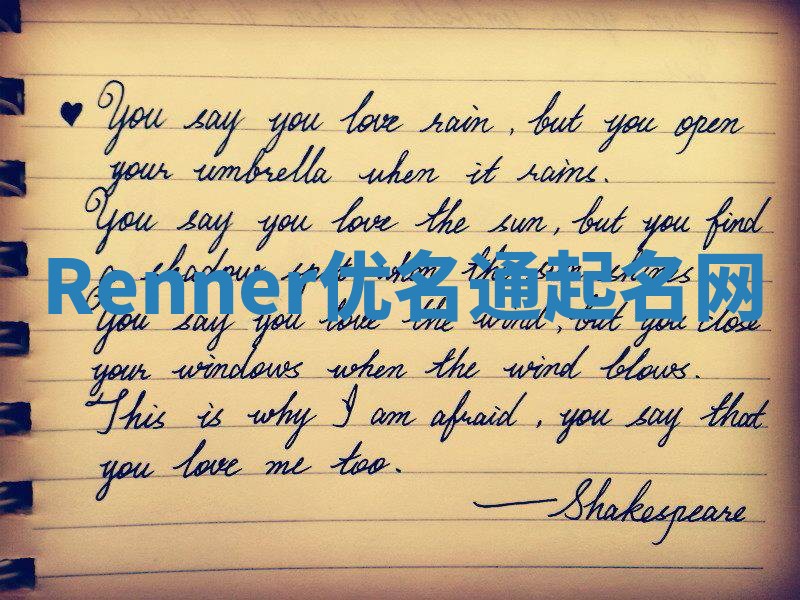 ♥ You say you love rain, but you open
your umbrella when it rains.
You say you love the sun, but you find
a shadow spot when the sun shines
Renner优名通起名网
You say you love the wind, but you close
your windows when the wind blows.
This is why I am afraid, you say that
you love me too.
—Shakespeare